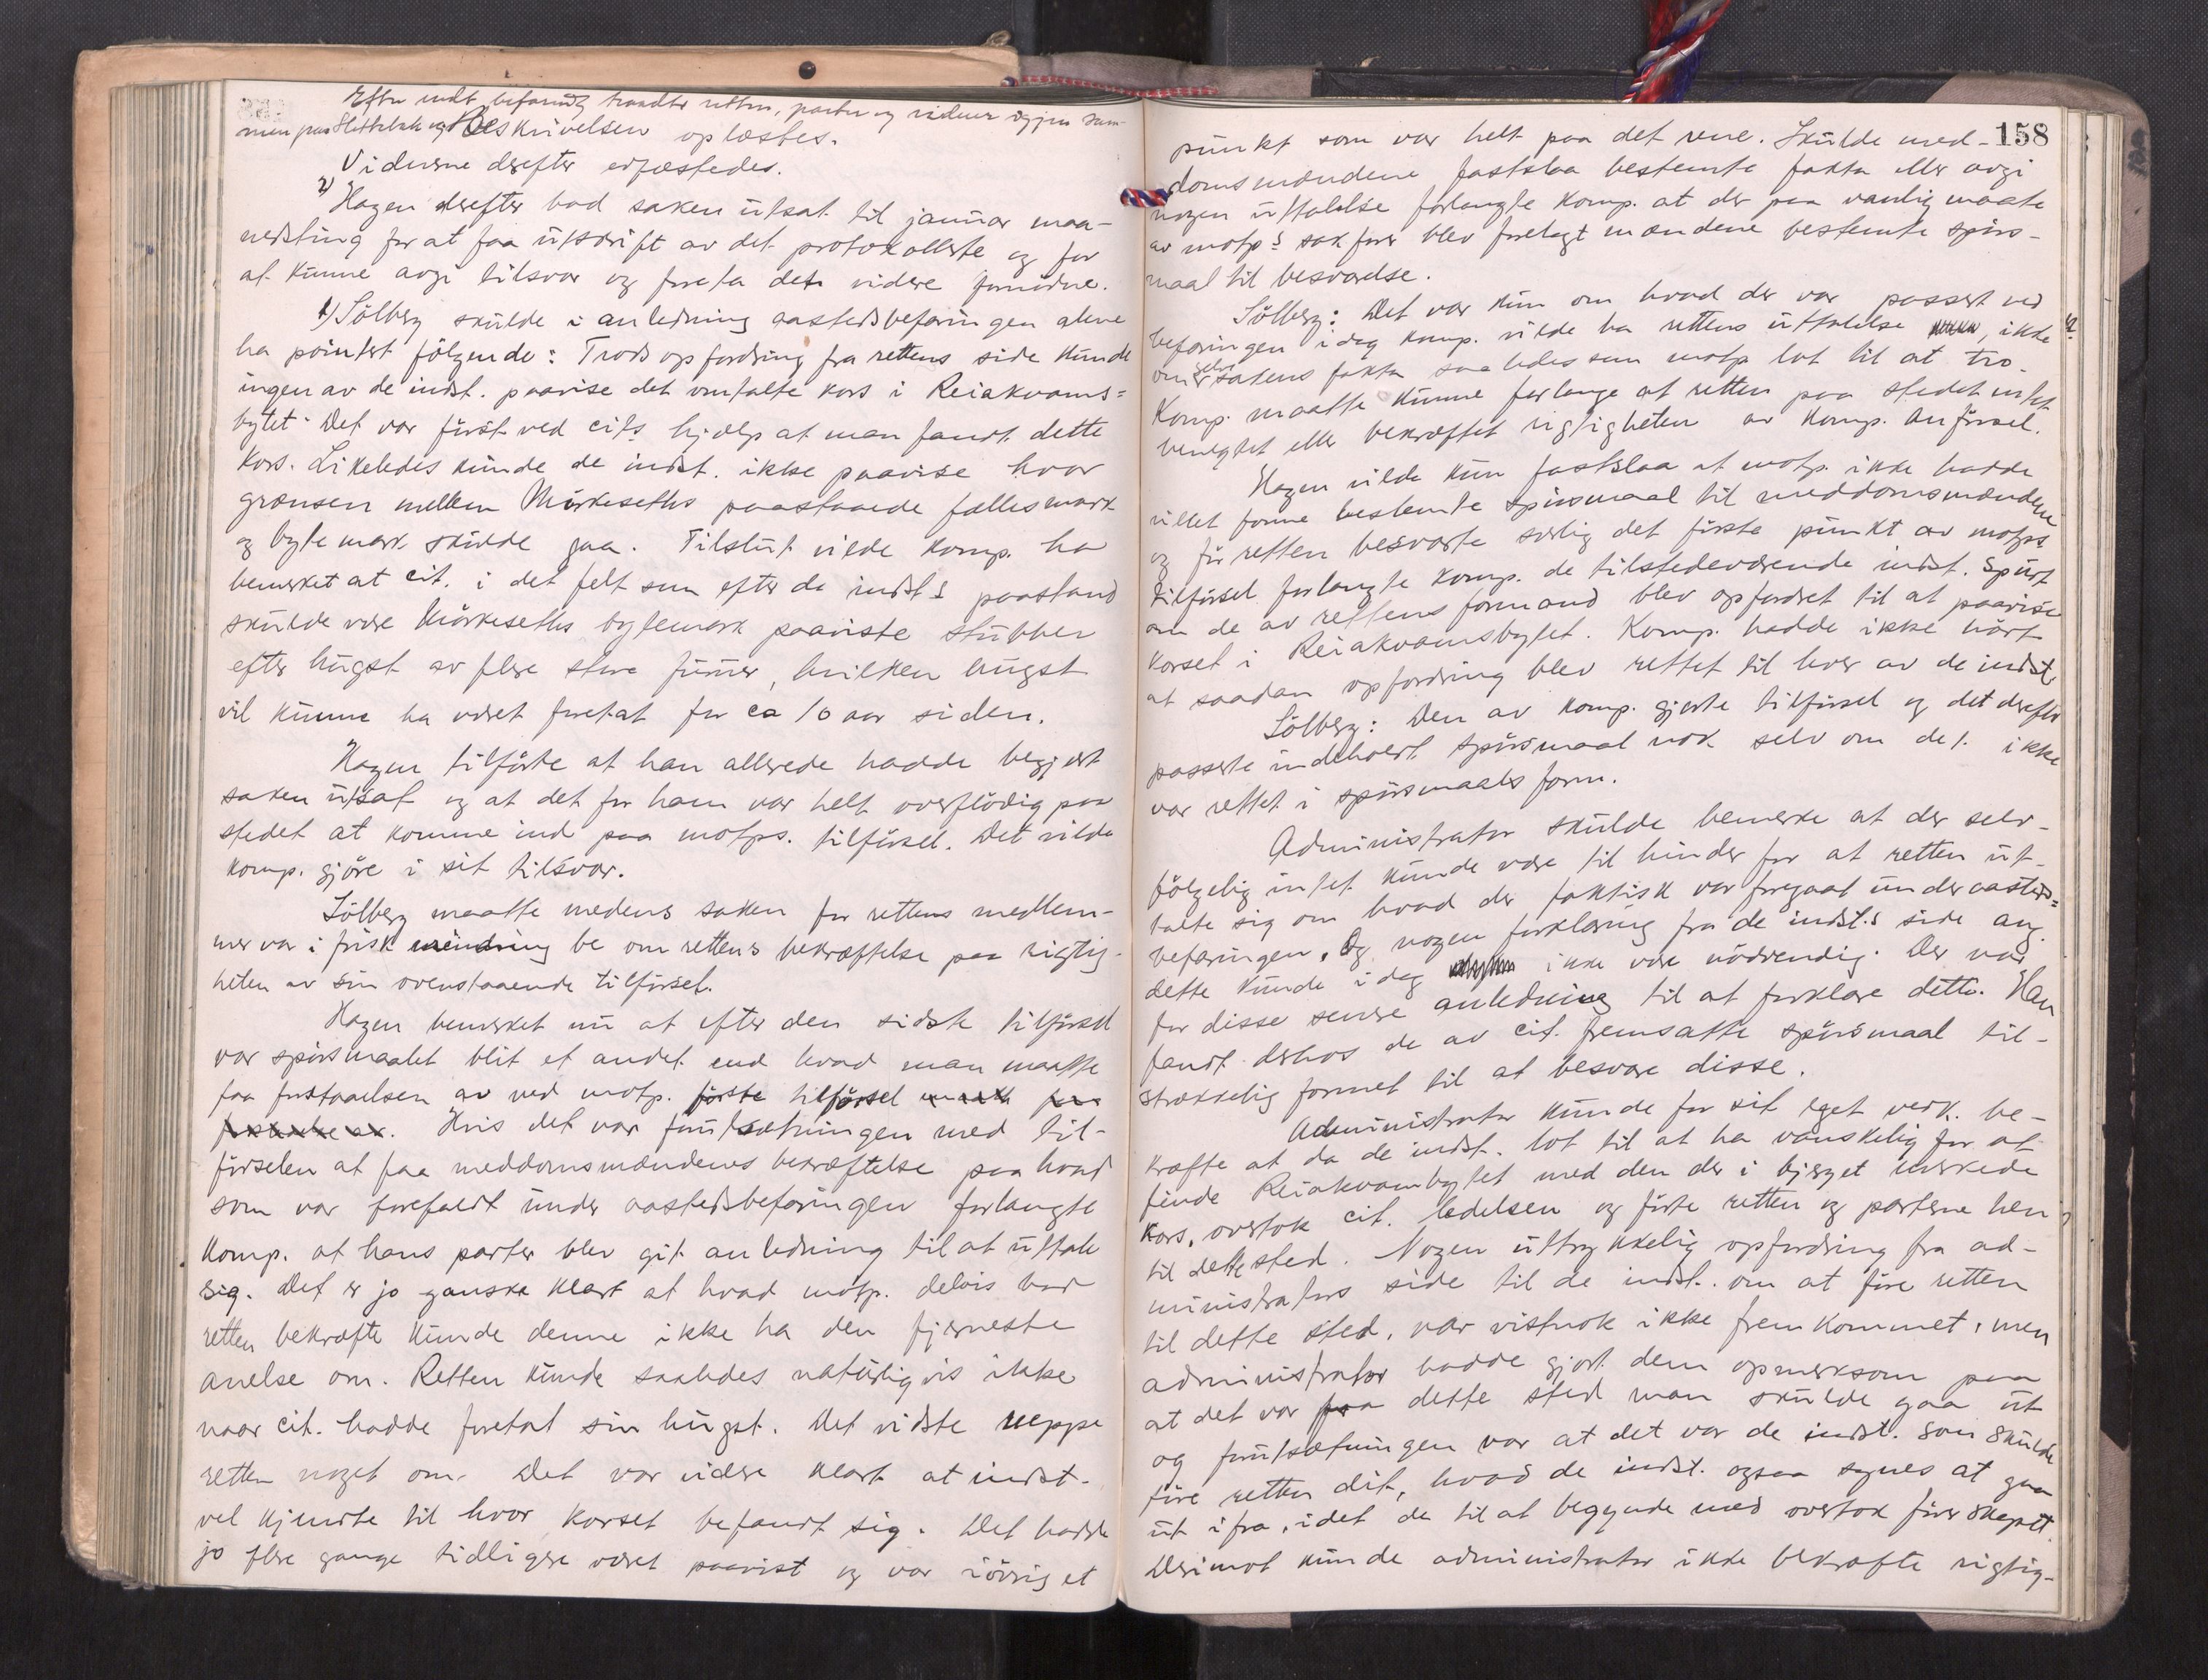 Efter endt befaring traadte retten, parter og vidner igjen sam-
men paa Slettebak og Beskrivelsen oplæstes.
Vidnerne derefter edfæstedes.
2) Hagen derefter bad saken utsat til januar maa-
nedsting for at faa utskrift av det protokollerte og for
at kunne avgi tilsvar og foreta det videre fornødne.
1) Sölberg skulde i anledning aastedsbefaringen alene
ha pointert følgende: Trods opfordring fra rettens side kunde
ingen av de indst. paavise det omtalte kors i Reiakvams-
bytet. Det var først ved cits hjælp at man fandt dette
kors. Likeledes kunde de indst. ikke paavise hvor
grænsen mellem Mörkeseths paastaaede fællesmark
og bytemark skulde gaa. Tilslut vilde komp. ha
bemerket at cit. i det felt som efter de indst.s paastand
skulde være Mörkeseths bytemark paaviste stubber
efter hugst av flere store furuer, hvilken hugst
vil kunne ha været foretat for ca 10 aar siden.
Hagen tilførte at han allerede hadde begjært
saken utsat og at det for ham var helt overflödig paa
stedet at komme ind paa motps. tilførsel. Det vilde
komp. gjøre i sit tilsvar.
Sölberg maatte medens saken for rettens medlem-
mer var i frisk minde be om rettens bekræftelse paa rigtig-
heten av sin ovenstaaende tilførsel.
Hagen bemerket nu at efter den sidste tilførsel
var spørsmaalet blit et andet end hvad man maatte
faa forstaaelsen av ved motp. første tilførsel
Hvis det var forutsætningen med til-
førselen at faa meddomsmændenes bekræftelse paa hvad
som var forefaldt under aastedsbefaringen forlangte
komp. at hans parter blev git anledning til at uttale
sig. Det er jo ganske klart at hvad motp. delvis bad
retten bekræfte kunde denne ikke ha den fjerneste
anelse om. Retten kunde saaledes naturligvis ikke
naar cit. hadde foretat sin hugst. Det vidste neppe
retten noget om. Det var videre klart at indst.
vel kjendte til hvor korset befandt sig. Det hadde
jo flere gange tidligere været paavist og var iövrig et
158
punkt som var helt paa det rene. Skulde med-
domsmændene fastslaa bestemte fakta eller avgi
nogen uttalelse forlangte komp. at der paa vanlig maate
av motp.s sakfører blev forelagt mændene bestemte spørs-
maal til besvarelse.
Sölberg: Det var kun om hvad der var passert ved
befaringen idag komp. vilde ha rettens uttalelse, ikke
om selve sakens fakta saaledes som motp lot til at tro.
Komp. maatte kunne forlange at retten paa stedet enten
benegtet eller bekræftet rigtigheten av komp. anførsel.
Hagen vilde kun fastslaa at motp. ikke hadde
villet forme bestemte spørsmaal til meddomsmændene
og før retten besvarte særlig det første punkt av motps.
tilførsel forlangte komp. de tilstedeværende indst. spurt
om de av rettens formand blev opfordret til at paavise
korset i Reiakvamsbytet. Komp. hadde ikke hørt
at saadan opfordring blev rettet til hver av de indst.
Sölberg: Den av komp. gjorte tilførsel og det derefter
passerte indeholdt spørsmaal nok selv om det ikke
var rettet i spørsmaals form.
Administrator skulde bemerke at der selv-
følgelig intet kunde være til hinder for at retten ut-
talte sig om hvad der faktisk var foregaat under aasteds-
befaringen. Og nogen forklaring fra de indst.s side ang.
dette kunde idag ikke være nødvendig. Der var
for disse senere anledning til at forklare dette. Han
fandt derhos de av cit. fremsatte spørsmaal til-
strækkelig formet til at besvare disse.
Administrator kunde for sit eget vedk. be-
kræfte at da de indst. lot til at ha vanskelig for at
finde Reiakvambytet med den der i bjerget merkede
kors, overtok cit. ledelsen og førte retten og parterne hen
til dette sted. Nogen uttrykkelig opfordring fra ad-
ministrators side til de indst. om at føre retten
til dette sted, var vistnok ikke fremkommet, men
administrator hadde gjort dem opmerksom paa
at det var fra dette sted man skulde gaa ut
og forutsætningen var at det var de indst. som skulde
føre retten dit, hvad de indst. ogsaa synes at gaa
ut ifra, idet de til at begynde med overtok førerskapet.
Derimot kunde administrator ikke bekræfte rigtig-